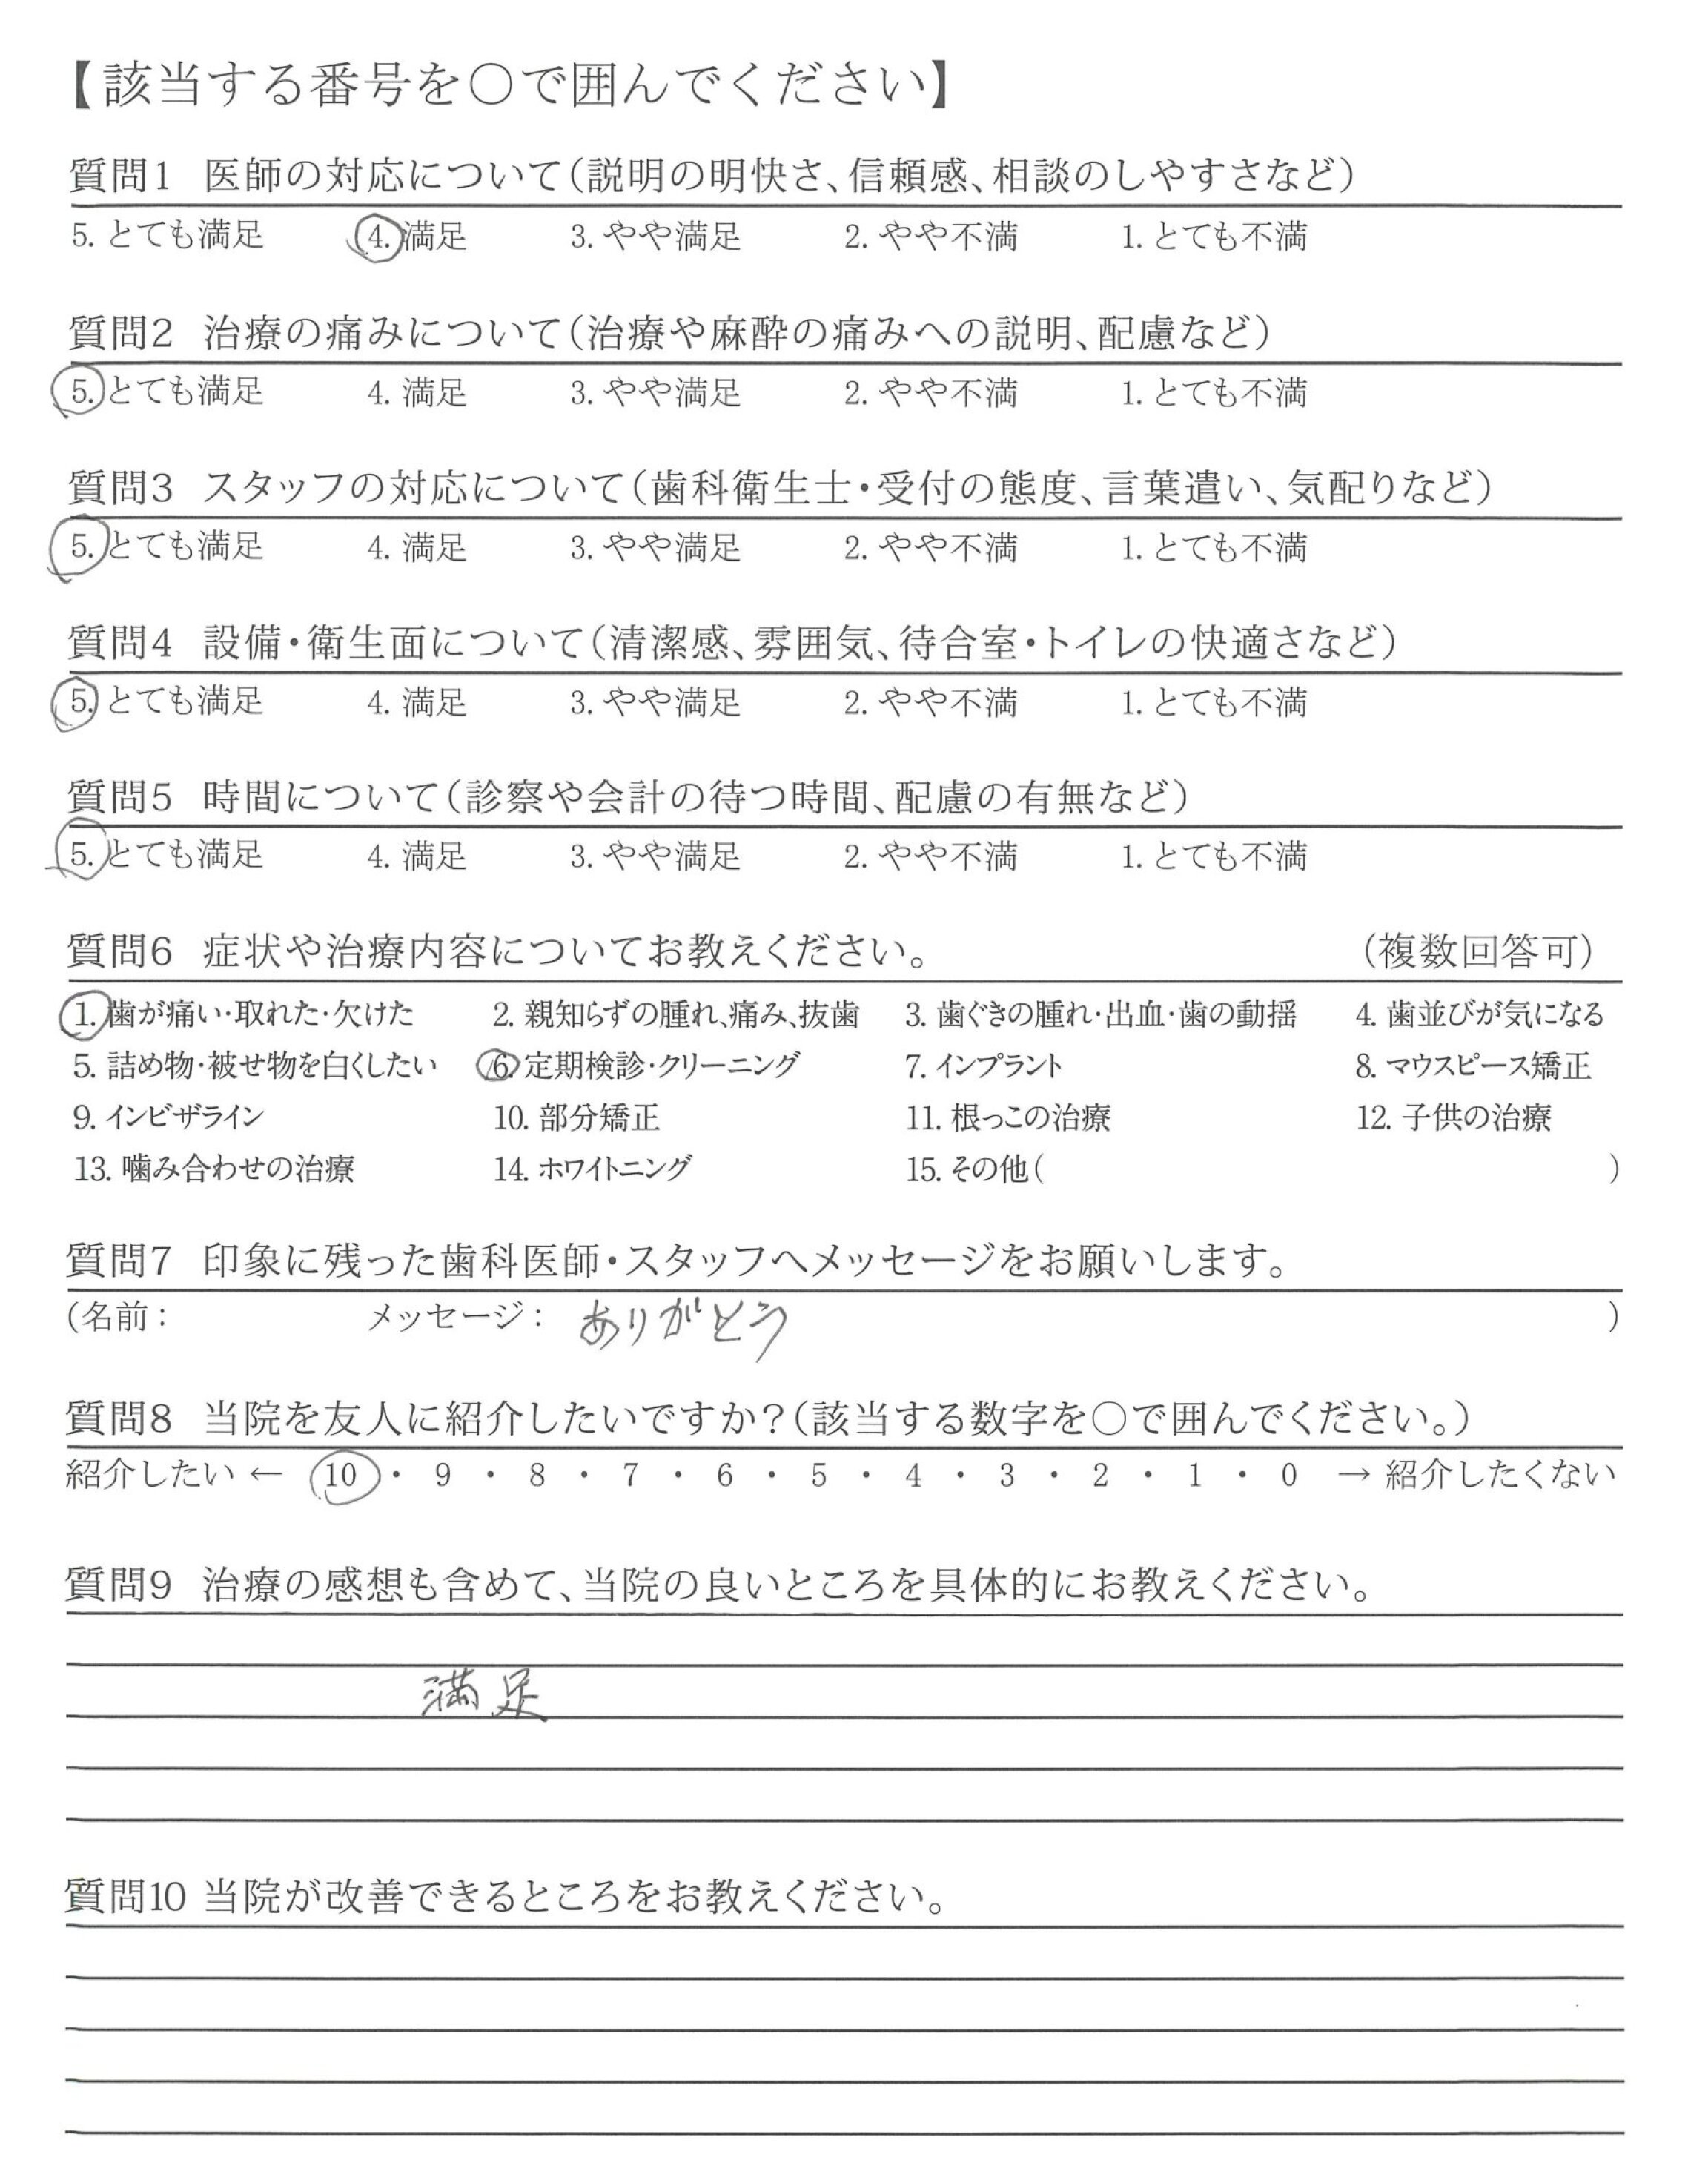 【該当する番号を○で囲んでください】
質問1 医師の対応について(説明の明快さ、信頼感、相談のしやすさなど)
5. とても満足 4. 満足 3. やや満足 2. やや不満 1. とても不満
質問2 治療の痛みについて(治療や麻酔の痛みへの説明、配慮など)
5. とても満足 4. 満足 3. やや満足 2. やや不満 1. とても不満
質問3 スタッフの対応について(歯科衛生士・受付の態度、言葉遣い、気配りなど)
5. とても満足 4. 満足 3. やや満足 2. やや不満 1. とても不満
質問4 設備・衛生面について(清潔感、雰囲気、待合室・トイレの快適さなど)
5. とても満足 4. 満足 3. やや満足 2. やや不満 1. とても不満
質問5 時間について(診察や会計の待つ時間、配慮の有無など)
5. とても満足 4. 満足 3. やや満足 2. やや不満 1. とても不満
質問6 症状や治療内容についてお教えください。 (複数回答可)
1. 歯が痛い・取れた・欠けた 2. 親知らずの腫れ、痛み、抜歯 3. 歯ぐきの腫れ・出血・歯の動揺 4. 歯並びが気になる
5. 詰め物・被せ物を白くしたい 6. 定期検診・クリーニング 7. インプラント 8. マウスピース矯正
9. インビザライン 10. 部分矯正 11. 根っこの治療 12. 子供の治療
13. 噛み合わせの治療 14. ホワイトニング 15. その他( )
質問7 印象に残った歯科医師・スタッフへメッセージをお願いします。
(名前: メッセージ: ありがとう )
質問8 当院を友人に紹介したいですか?(該当する数字を○で囲んでください。)
紹介したい ← 10 ・ 9 ・ 8 ・ 7 ・ 6 ・ 5 ・ 4 ・ 3 ・ 2 ・ 1 ・ 0 → 紹介したくない
質問9 治療の感想も含めて、当院の良いところを具体的にお教えください。
満足
質問10 当院が改善できるところをお教えください。